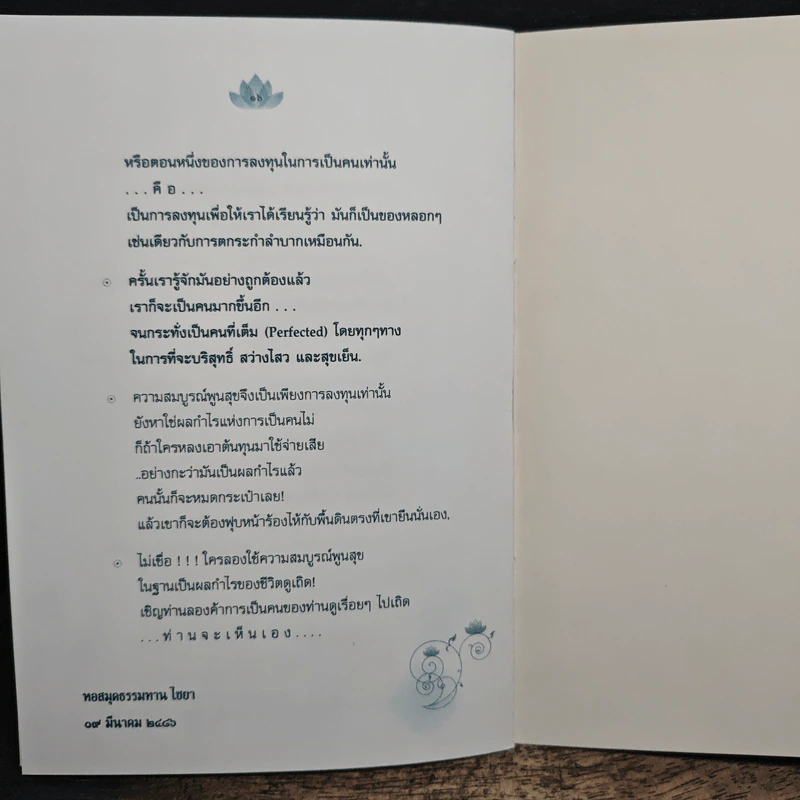 ๑๖
หรือตอนหนึ่งของการลงทุนในการเป็นคนเท่านั้น
...คือ...
เป็นการลงทุนเพื่อให้เราได้เรียนรู้ว่า มันก็เป็นของหลอกๆ
เช่นเดียวกับการตกระกำลำบากเหมือนกัน.
ครั้นเรารู้จักมันอย่างถูกต้องแล้ว
เราก็จะเป็นคนมากขึ้นอีก ...
จนกระทั่งเป็นคนที่เต็ม (Perfected) โดยทุกๆทาง
ในการที่จะบริสุทธิ์ สว่างไสว และสุขเย็น.
ความสมบูรณ์พูนสุขจึงเป็นเพียงการลงทุนเท่านั้น
ยังหาใช่ผลกำไรแห่งการเป็นคนไม่
ก็ถ้าใครหลงเอาต้นทุนมาใช้จ่ายเสีย
..อย่างกะว่ามันเป็นผลกำไรแล้ว
คนนั้นก็จะหมดกระเป๋าเลย!
แล้วเขาก็จะต้องฟุบหน้าร้องไห้กับพื้นดินตรงที่เขายืนนั่นเอง.
ไม่เชื่อ ! ! ! ใครลองใช้ความสมบูรณ์พูนสุข
ในฐานเป็นผลกำไรของชีวิตดูเถิด!
เชิญท่านลองค้าการเป็นคนของท่านดูเรื่อยๆ ไปเถิด
...ท่านจะเห็นเอง....
หอสมุดธรรมทาน ไชยา
๐๙ มีนาคม ๒๔๘๖